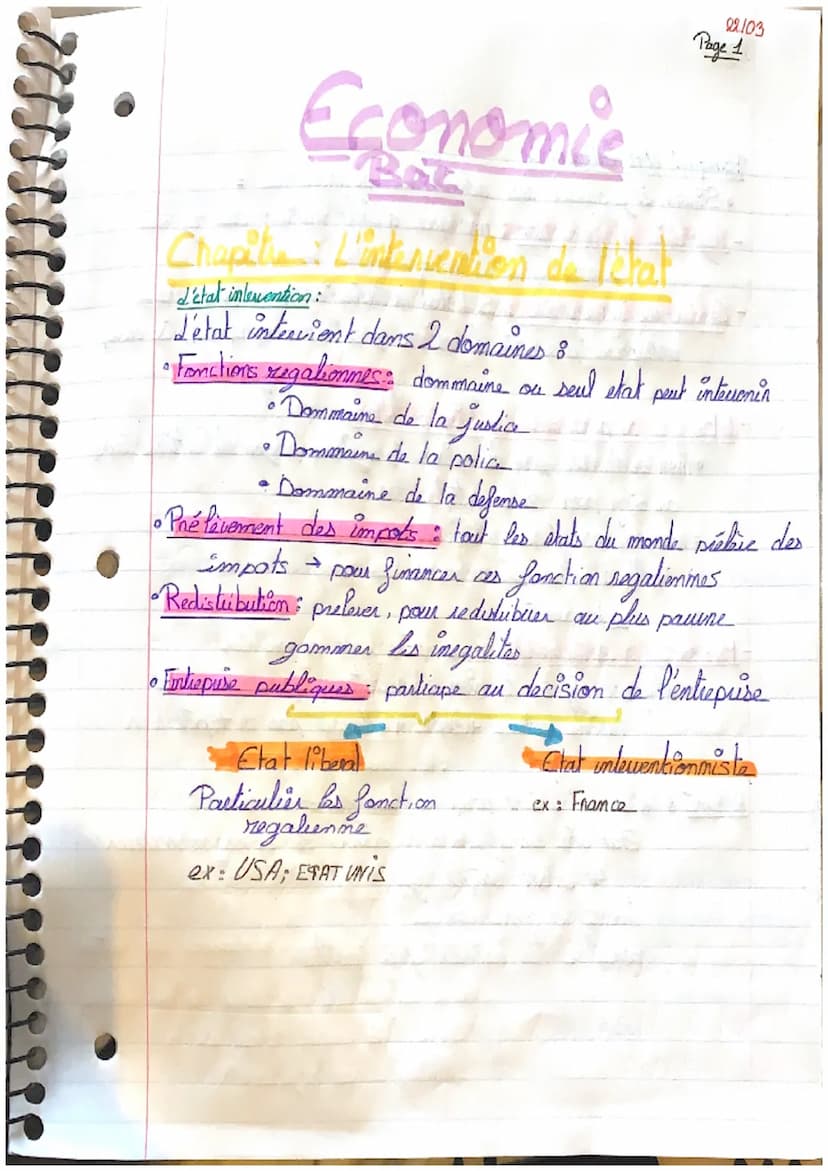 22/03
Page 1
Economie
Bat
Chapitre : L'intervention de l'état
L'état intervention :
L'état intervient dans 2 domaines :
• Fonctions regaliennes : dommaine ou seul etat peut intervenir
• Dommaine de la justice
• Dommaine de la police
• Dommaine de la defense
• Prélèvement des impots : tout les états du monde prélève des
impots → pour financer ces fonction regaliennes
• Redistribution : prelever, pour redistribuer au plus pauvre
gommer les inegalites
• Entreprise publiques : participe au decision de l'entreprise
Etat liberal
Etat interventionniste
Particulier les fonction
regalienne
ex : France
ex : USA; ETAT UNIS